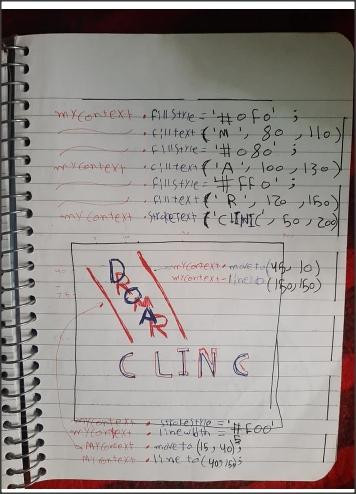 myContext . fillStyle = '#0F0' ;
. filltext ('M', 80, 110)
. fillStyle = '#080' ;
myContext . filltext ('A', 100, 130)
. fillStyle = '#FF0' ;
. filltext ('R', 120, 150)
myContext . stroketext ('CLINIC', 50, 200)
myContext . moveto (45, 10)
myContext . lineto (150, 150)
DROMAR
CLINC
myContext . strokestyle = '#F00'
myContext . linewidth = 5
myContext . moveto (15, 40) ;
myContext . lineto